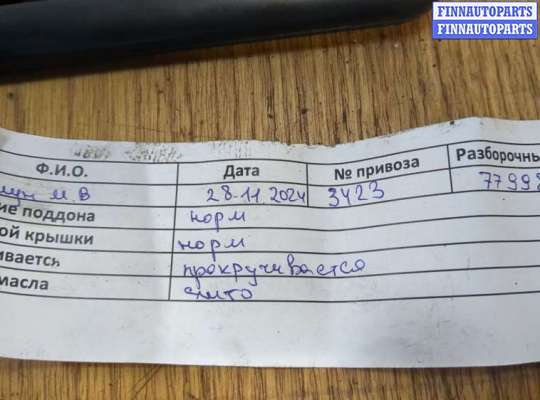 FINNAUTOPARTS
FINNAUTOPARTS
Ф.И.О. Дата № привоза Разборочны
м В 28-11.2024 3423 77998
ие поддона норм
ой крышки норм
ивается прокручивается
масла слито